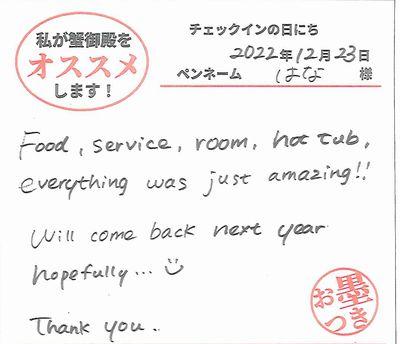 私が蟹御殿を
オススメ
します!
チェックインの日にち
2022年12月23日
ペンネーム はな 様
Food, service, room, hot tub,
everything was just amazing!!
Will come back next year
hopefully...
Thank you.
お墨つき